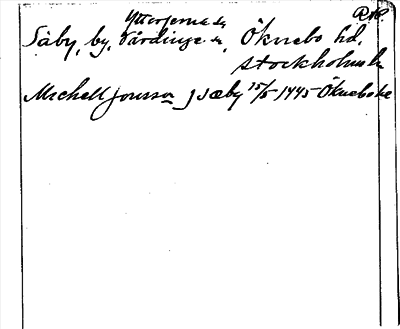 Ytterjerna sn
Säby, by, Vårdinge sn, Öknebo hd,
Stockholms l.
Mechell Jonsson J Sæby 15/5 1445 Öknebo hd